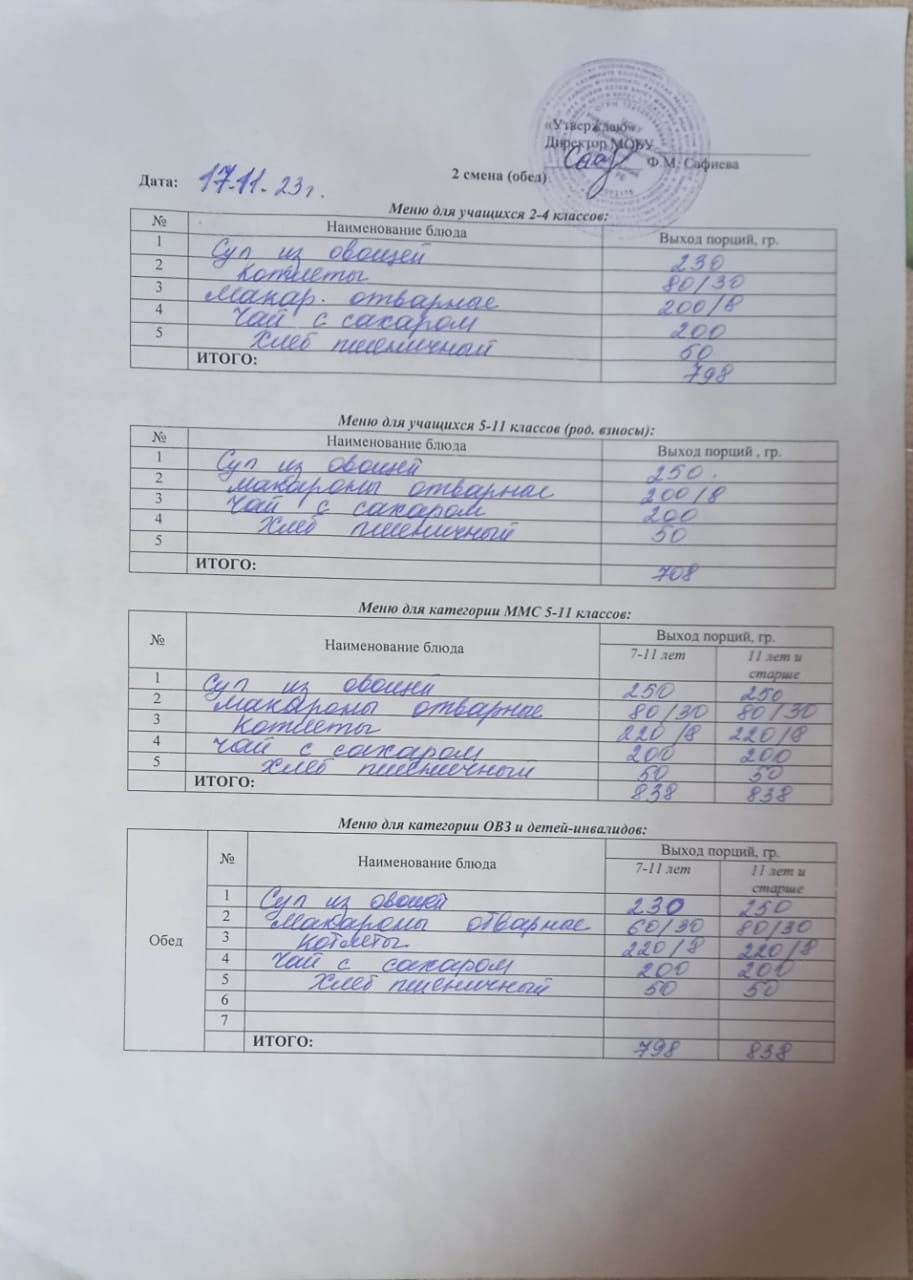 «Утверждаю»
Директор МОБУ
Ф.М. Сафиева
Дата: 17.11.23 г.
2 смена (обед)
Меню для учащихся 2-4 классов:
№ Наименование блюда Выход порций, гр.
1 Суп из овощей 230
2 Котлеты 80/30
3 Макар. отварные 200/8
4 Чай с сахаром 200
5 Хлеб пшеничный 50
ИТОГО: 798
Меню для учащихся 5-11 классов (род. взносы):
№ Наименование блюда Выход порций , гр.
1 Суп из овощей 250.
2 Макароны отварные 200/8
3 Чай с сахаром 200
4 Хлеб пшеничный 50
5
ИТОГО: 708
Меню для категории ММС 5-11 классов:
№ Наименование блюда Выход порций, гр.
7-11 лет 11 лет и старше
1 Суп из овощей 250 250
2 Макароны отварные 80/30 80/30
3 Котлеты 220/8 220/8
4 Чай с сахаром 200 200
5 Хлеб пшеничный 50 50
ИТОГО: 838 838
Меню для категории ОВЗ и детей-инвалидов:
Обед
№ Наименование блюда Выход порций, гр.
7-11 лет 11 лет и старше
1 Суп из овощей 230 250
2 Макароны отварные 60/30 80/30
3 Котлеты 220/8 220/8
4 Чай с сахаром 200 200
5 Хлеб пшеничный 50 50
6
7
ИТОГО: 798 838